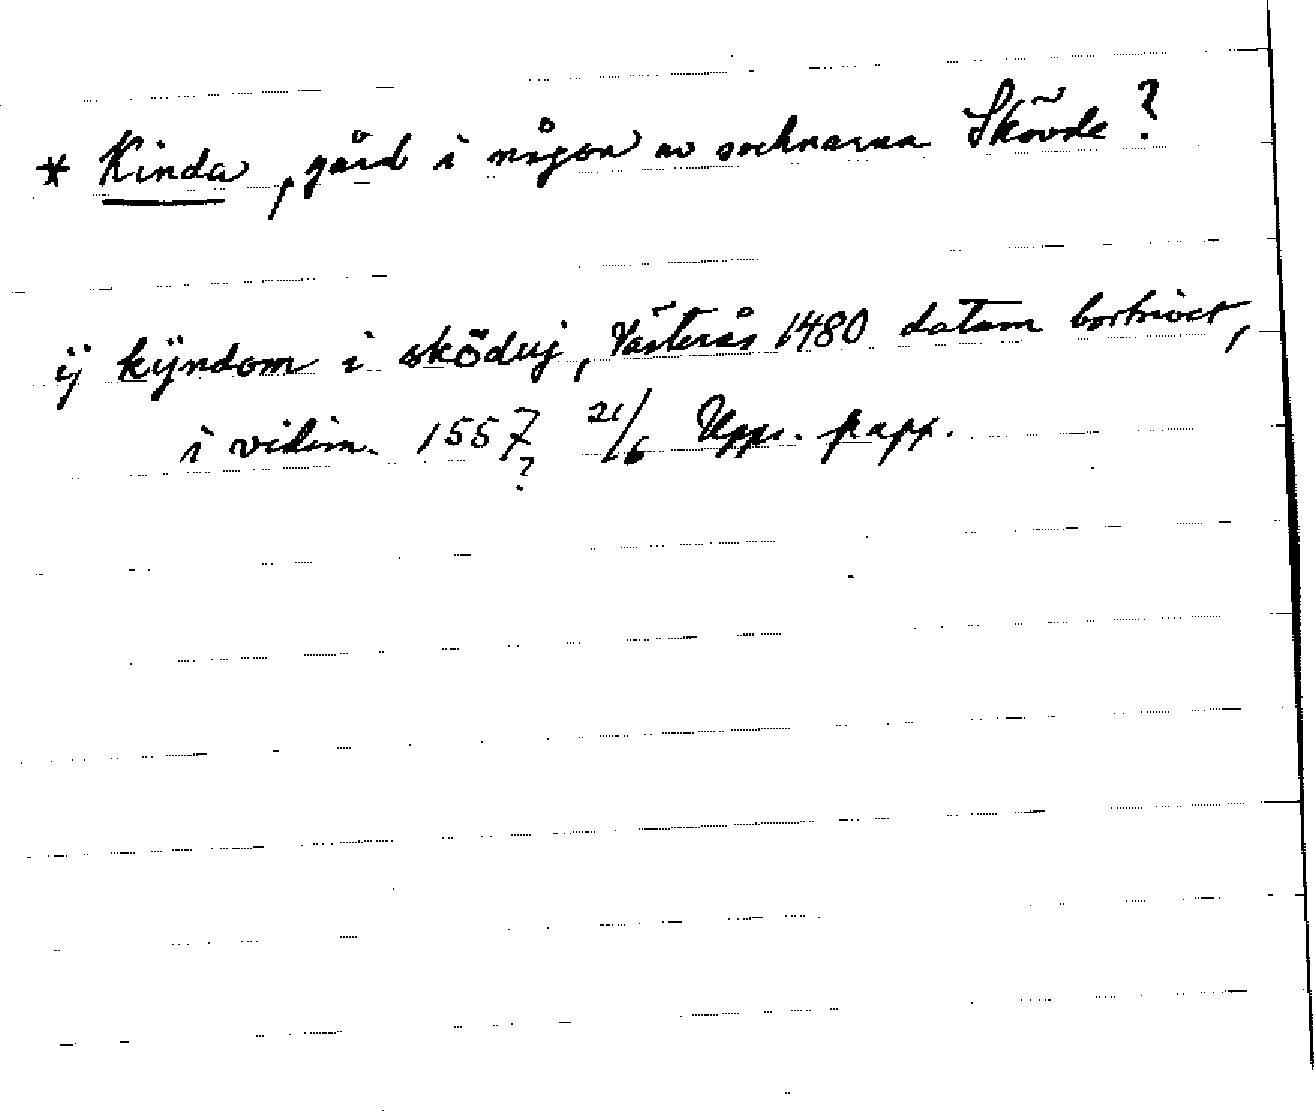 * Kinda, gård i någon av socknarna Skövde?
ij kÿndom i sködvj, Västerås 1480 datum bortrivet,
i vidim. 1557? 21/6 Upps. papp.